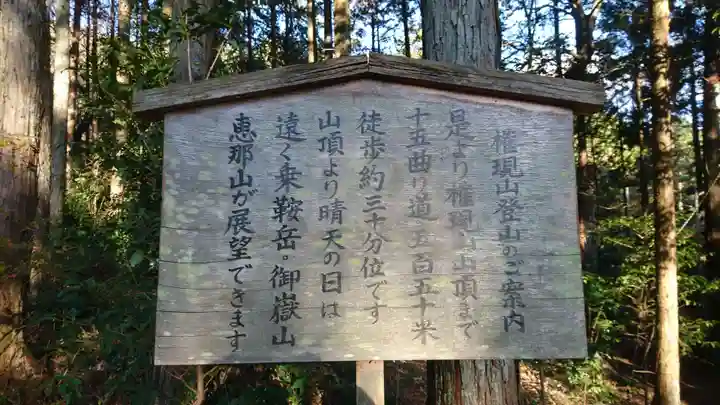 権現山登山のご案内
是より権現山山頂まで
十五曲り道五百五十米
徒歩約三十分位です
山頂より晴天の日は
遠く乗鞍岳。御嶽山
恵那山が展望できます